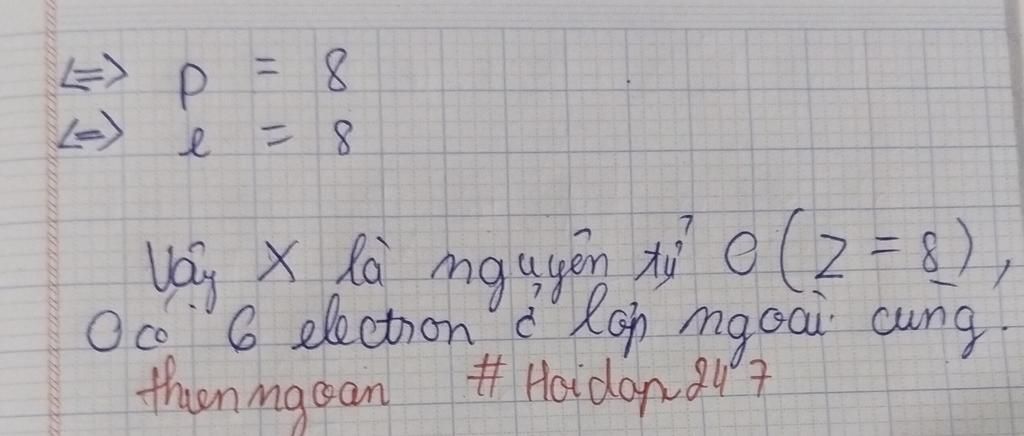 <=> p = 8
<=> e = 8
Vậy X là nguyên tử O (Z = 8),
O có 6 electron ở lớp ngoài cùng.
thienngoan # Hoidap247